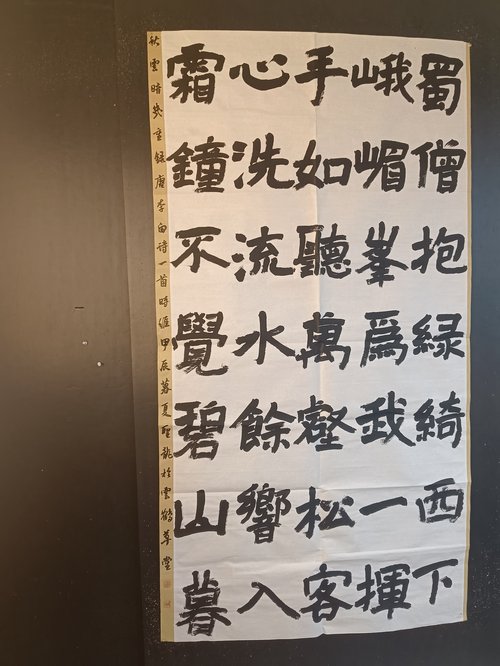 蜀僧抱綠綺西下
峨嵋峯爲我一揮
手如聽萬壑松客
心洗流水餘響入
霜鐘不覺碧山暮
秋雲暗幾重錄唐李白詩一首時維甲辰暮夏聖龍於雲鶴草堂